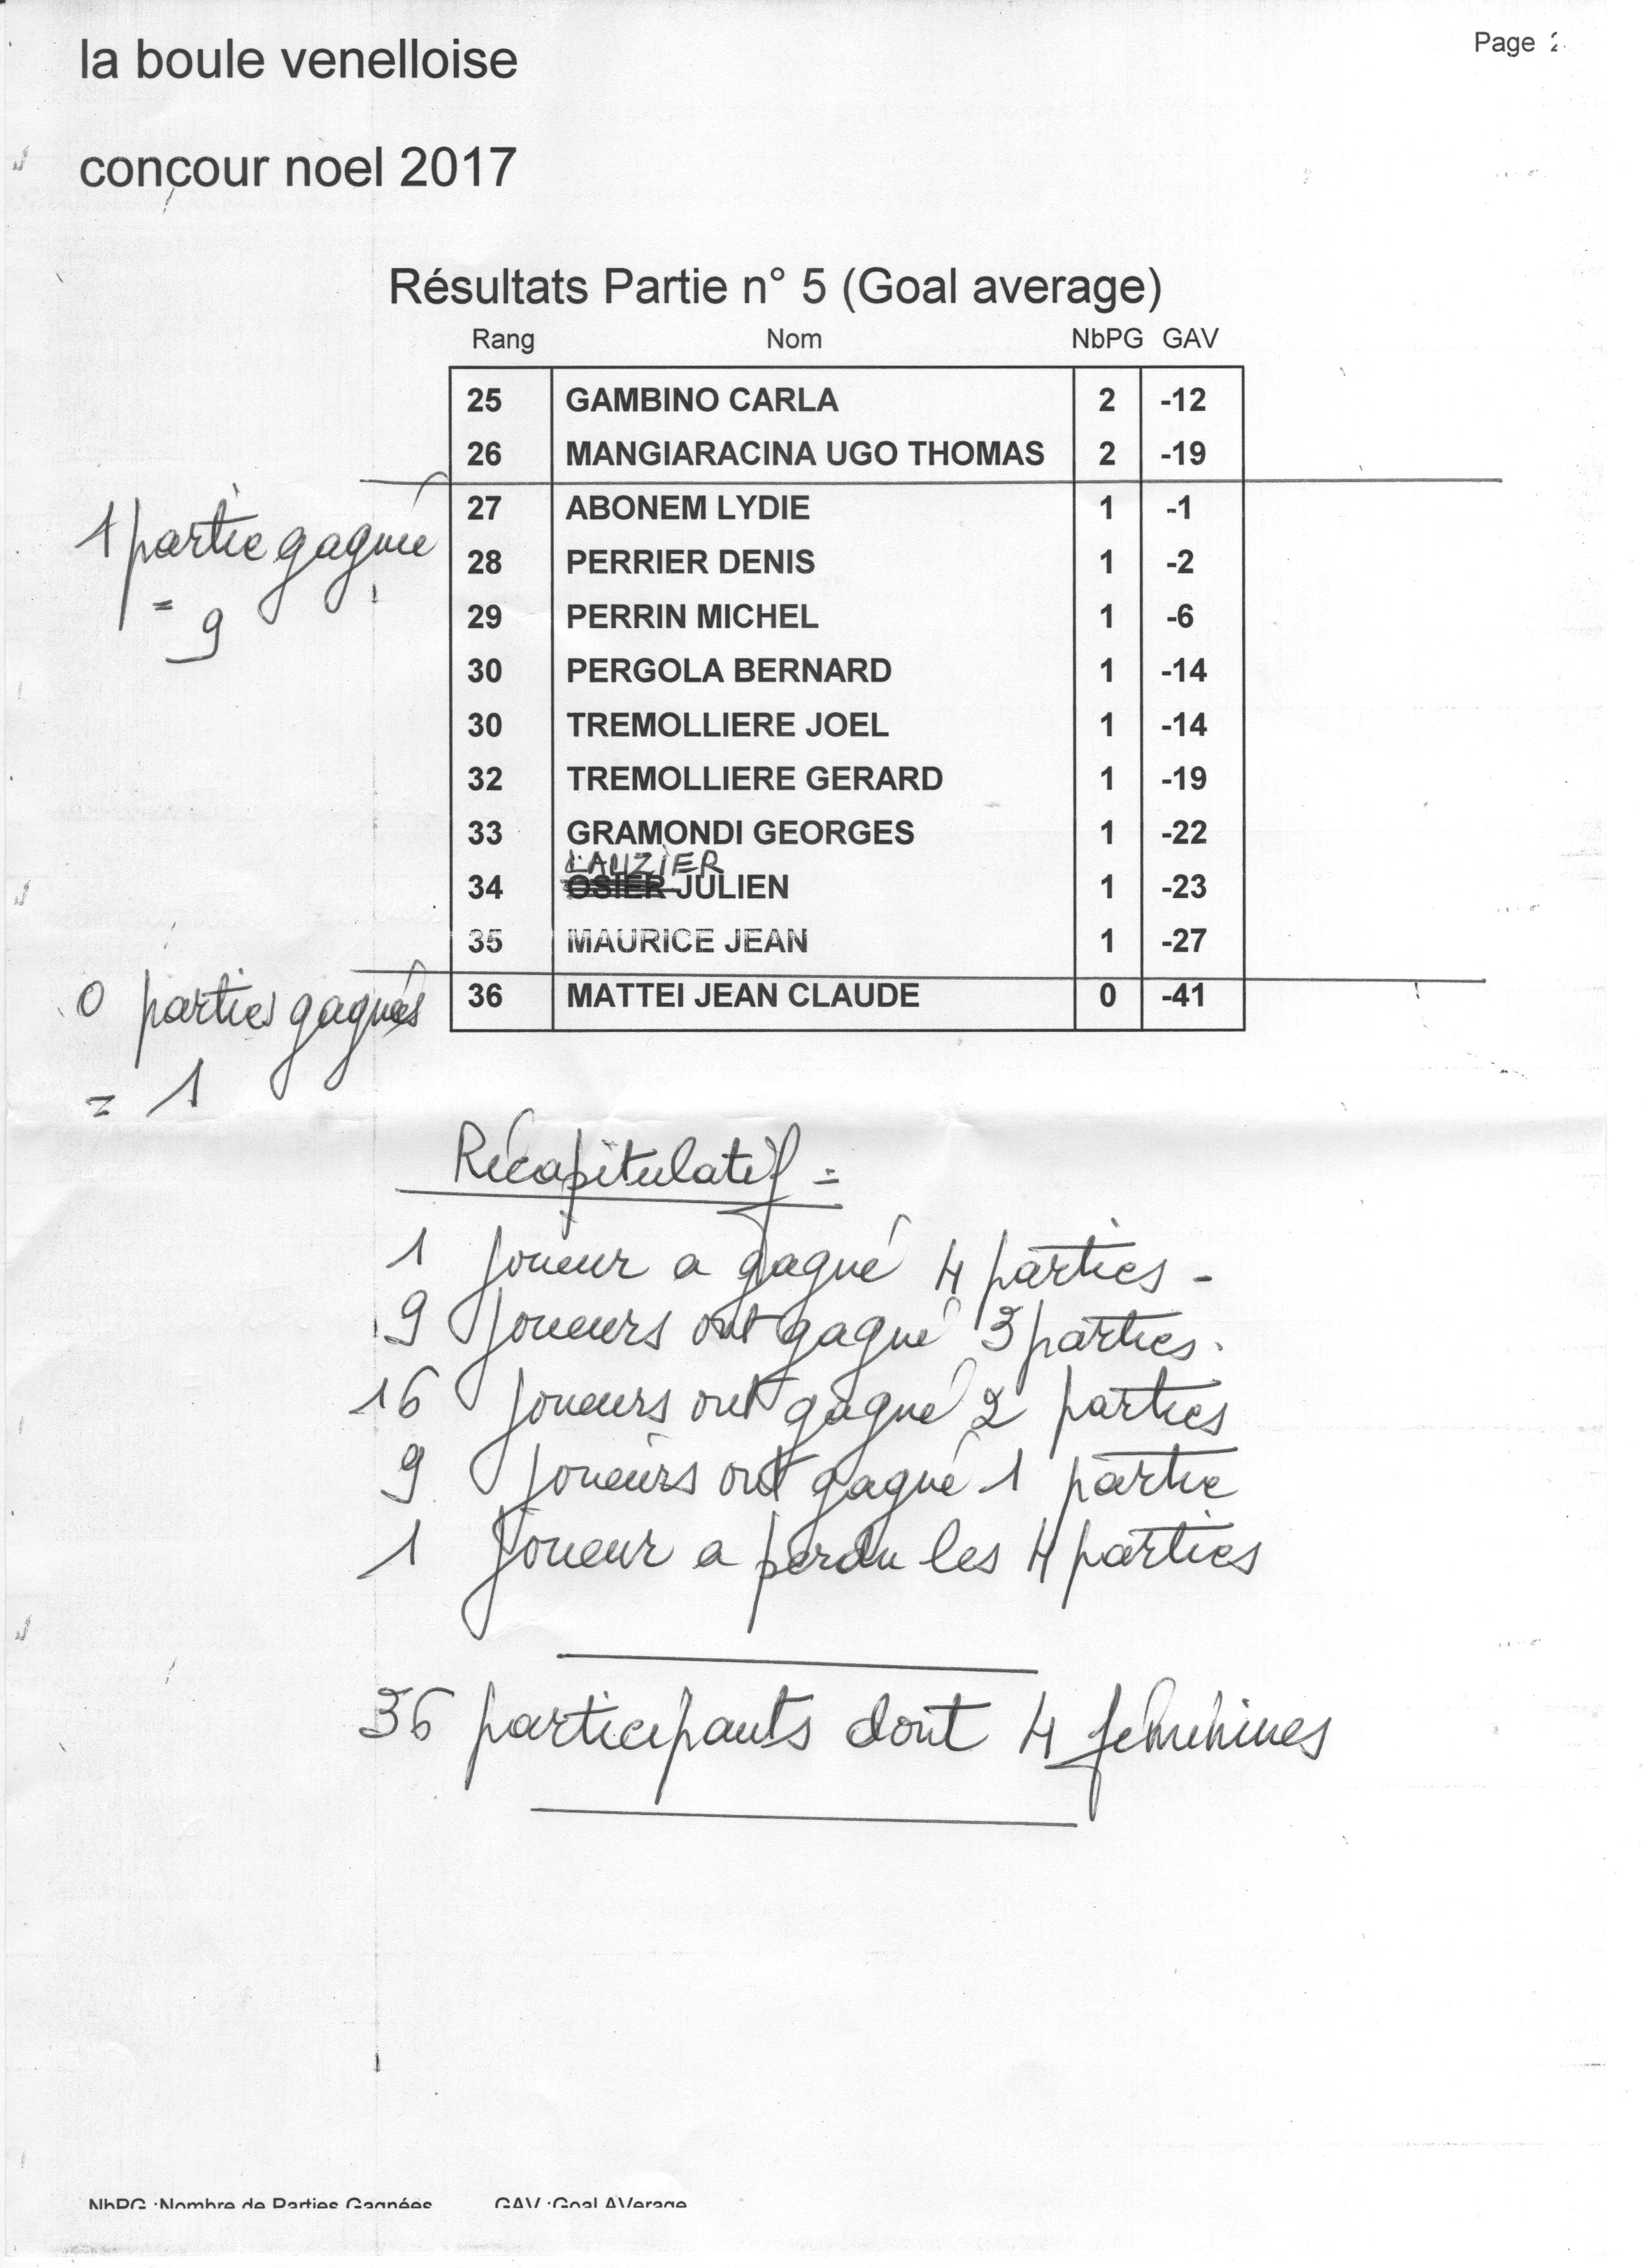 la boule venelloise
Page 2
concour noel 2017
Résultats Partie n° 5 (Goal average)
Rang Nom NbPG GAV
25 GAMBINO CARLA 2 -12
26 MANGIARACINA UGO THOMAS 2 -19
27 ABONEM LYDIE 1 -1
1 partie gagnée
28 PERRIER DENIS 1 -2
= 9
29 PERRIN MICHEL 1 -6
30 PERGOLA BERNARD 1 -14
30 TREMOLLIERE JOEL 1 -14
32 TREMOLLIERE GERARD 1 -19
33 GRAMONDI GEORGES 1 -22
LAUZIER
34 OSIER JULIEN 1 -23
35 MAURICE JEAN 1 -27
36 MATTEI JEAN CLAUDE 0 -41
0 parties gagnés
= 1
Récapitulatif =
1 joueur a gagné 4 parties -
9 joueurs ont gagné 3 parties.
16 joueurs ont gagné 2 parties
9 joueurs ont gagné 1 partie
1 joueur a perdu les 4 parties
36 participants dont 4 féminines
NbPG :Nombre de Parties Gagnées GAV :Goal AVerage